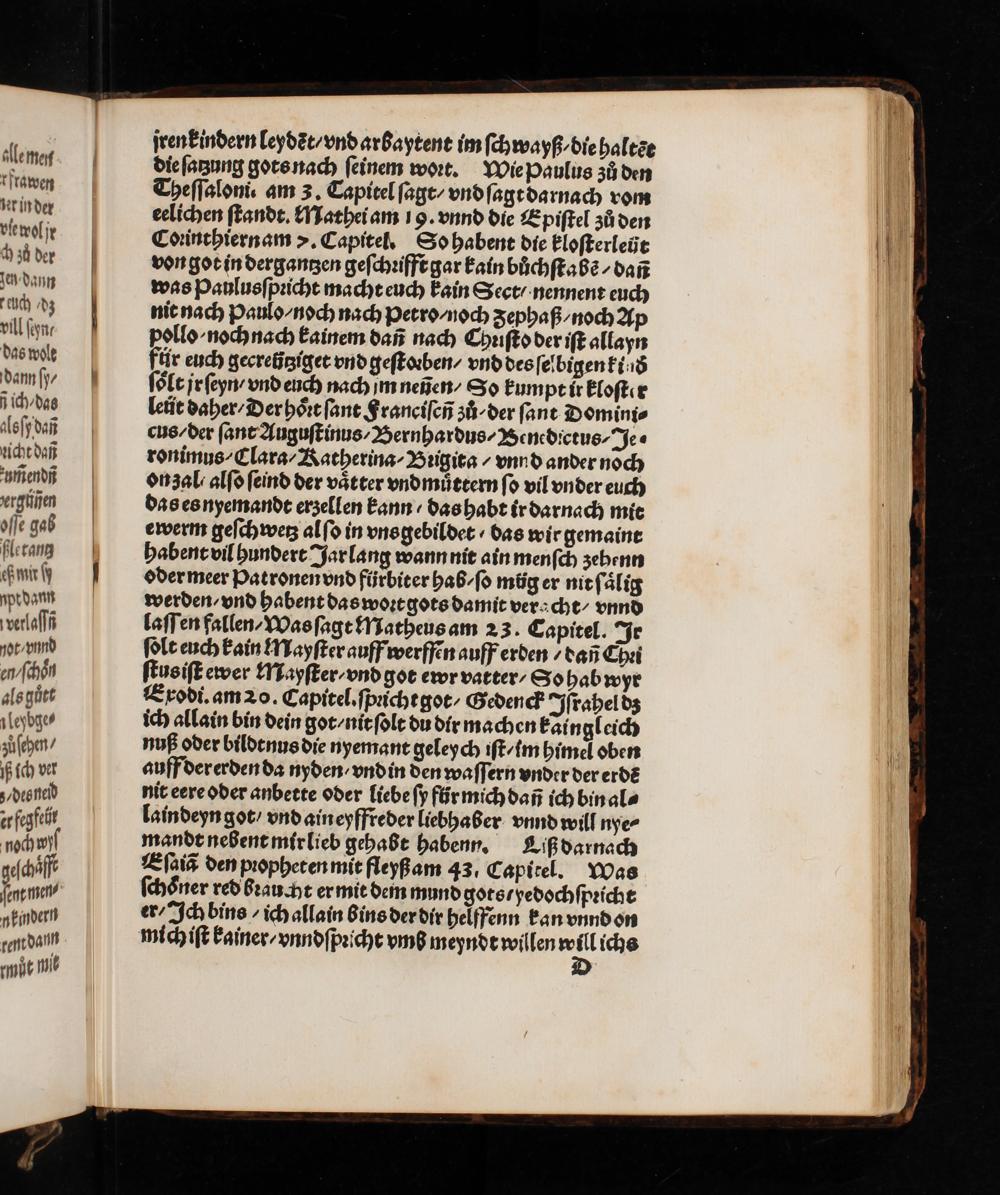 jren kindern leydẽt/ vnd arbaytent im ſchwayß/ die haltẽt
die ſatzung gots nach ſeinem wort. Wie Paulus zů den
Theſſaloni. am 3. Capitel ſagt/ vnd ſagt darnach vom
eelichen ſtandt. Mathei am 19. vnnd die Epiſtel zů den
Corinthiern am 7. Capitel. So habent die kloſterleüt
von got in der gantzen geſchrifft gar kain bůchſtabẽ/ dañ
was Paulus ſpricht macht euch kain Sect/ nennent euch
nit nach Paulo/ noch nach Petro/ noch Zephaß/ noch Ap
pollo/ noch nach kainem dañ nach Chriſto der iſt allayn
für euch gecreütziget vnd geſtorben/ vnd des ſelbigen kind
ſoͤlt jr ſeyn/ vnd euch nach jm neñen/ So kumpt ir kloſter
leüt daher/ Der hoͤrt ſant Franciſceñ zů/ der ſant Domini⸗
cus/ der ſant Auguſtinus/ Bernhardus/ Benedictus/ Je⸗
ronimus/ Clara/ Katherina/ Brigita/ vnnd ander noch
on zal/ alſo ſeind der vaͤtter vnd můttern ſo vil vnder euch
das es nyemandt erzellen kann/ das habt ir darnach mit
ewerm geſchwetz alſo in vns gebildet/ das wir gemaint
habent vil hundert Jar lang wann nit ain menſch zehenn
oder meer Patronen vnd fürbiter hab/ ſo müg er nit ſaͤlig
werden/ vnd habent das wort gots damit veracht/ vnnd
laſſen fallen/ Was ſagt Matheus am 23. Capitel. Jr
ſolt euch kain Mayſter auff werffen auff erden/ dañ Chri
ſtus iſt ewer Mayſter/ vnd got ewr vatter/ So hab wyr
Exodi. am 20. Capitel. ſpricht got/ Gedenck Jſrahel dz
ich allain bin dein got/ nit ſolt du dir machen kain gleich
nuß oder bildtnus die nyemant geleych iſt/ im himel oben
auff der erden da nyden/ vnd in den waſſern vnder der erdẽ
nit eere oder anbette oder liebe ſy für mich dañ ich bin al⸗
lain deyn got/ vnd ain eyffreder liebhaber vnnd will nye⸗
mandt nebent mir lieb gehabt habenn. Liß darnach
Eſaiã den propheten mit fleyß am 43. Capitel. Was
ſchoͤner red braucht er mit dem mund gots/ yedoch ſpricht
er/ Jch bins/ ich allain bins der dir helffenn kan vnnd on
mich iſt kainer/ vnnd ſpricht vmb meyndt willen will ichs
D